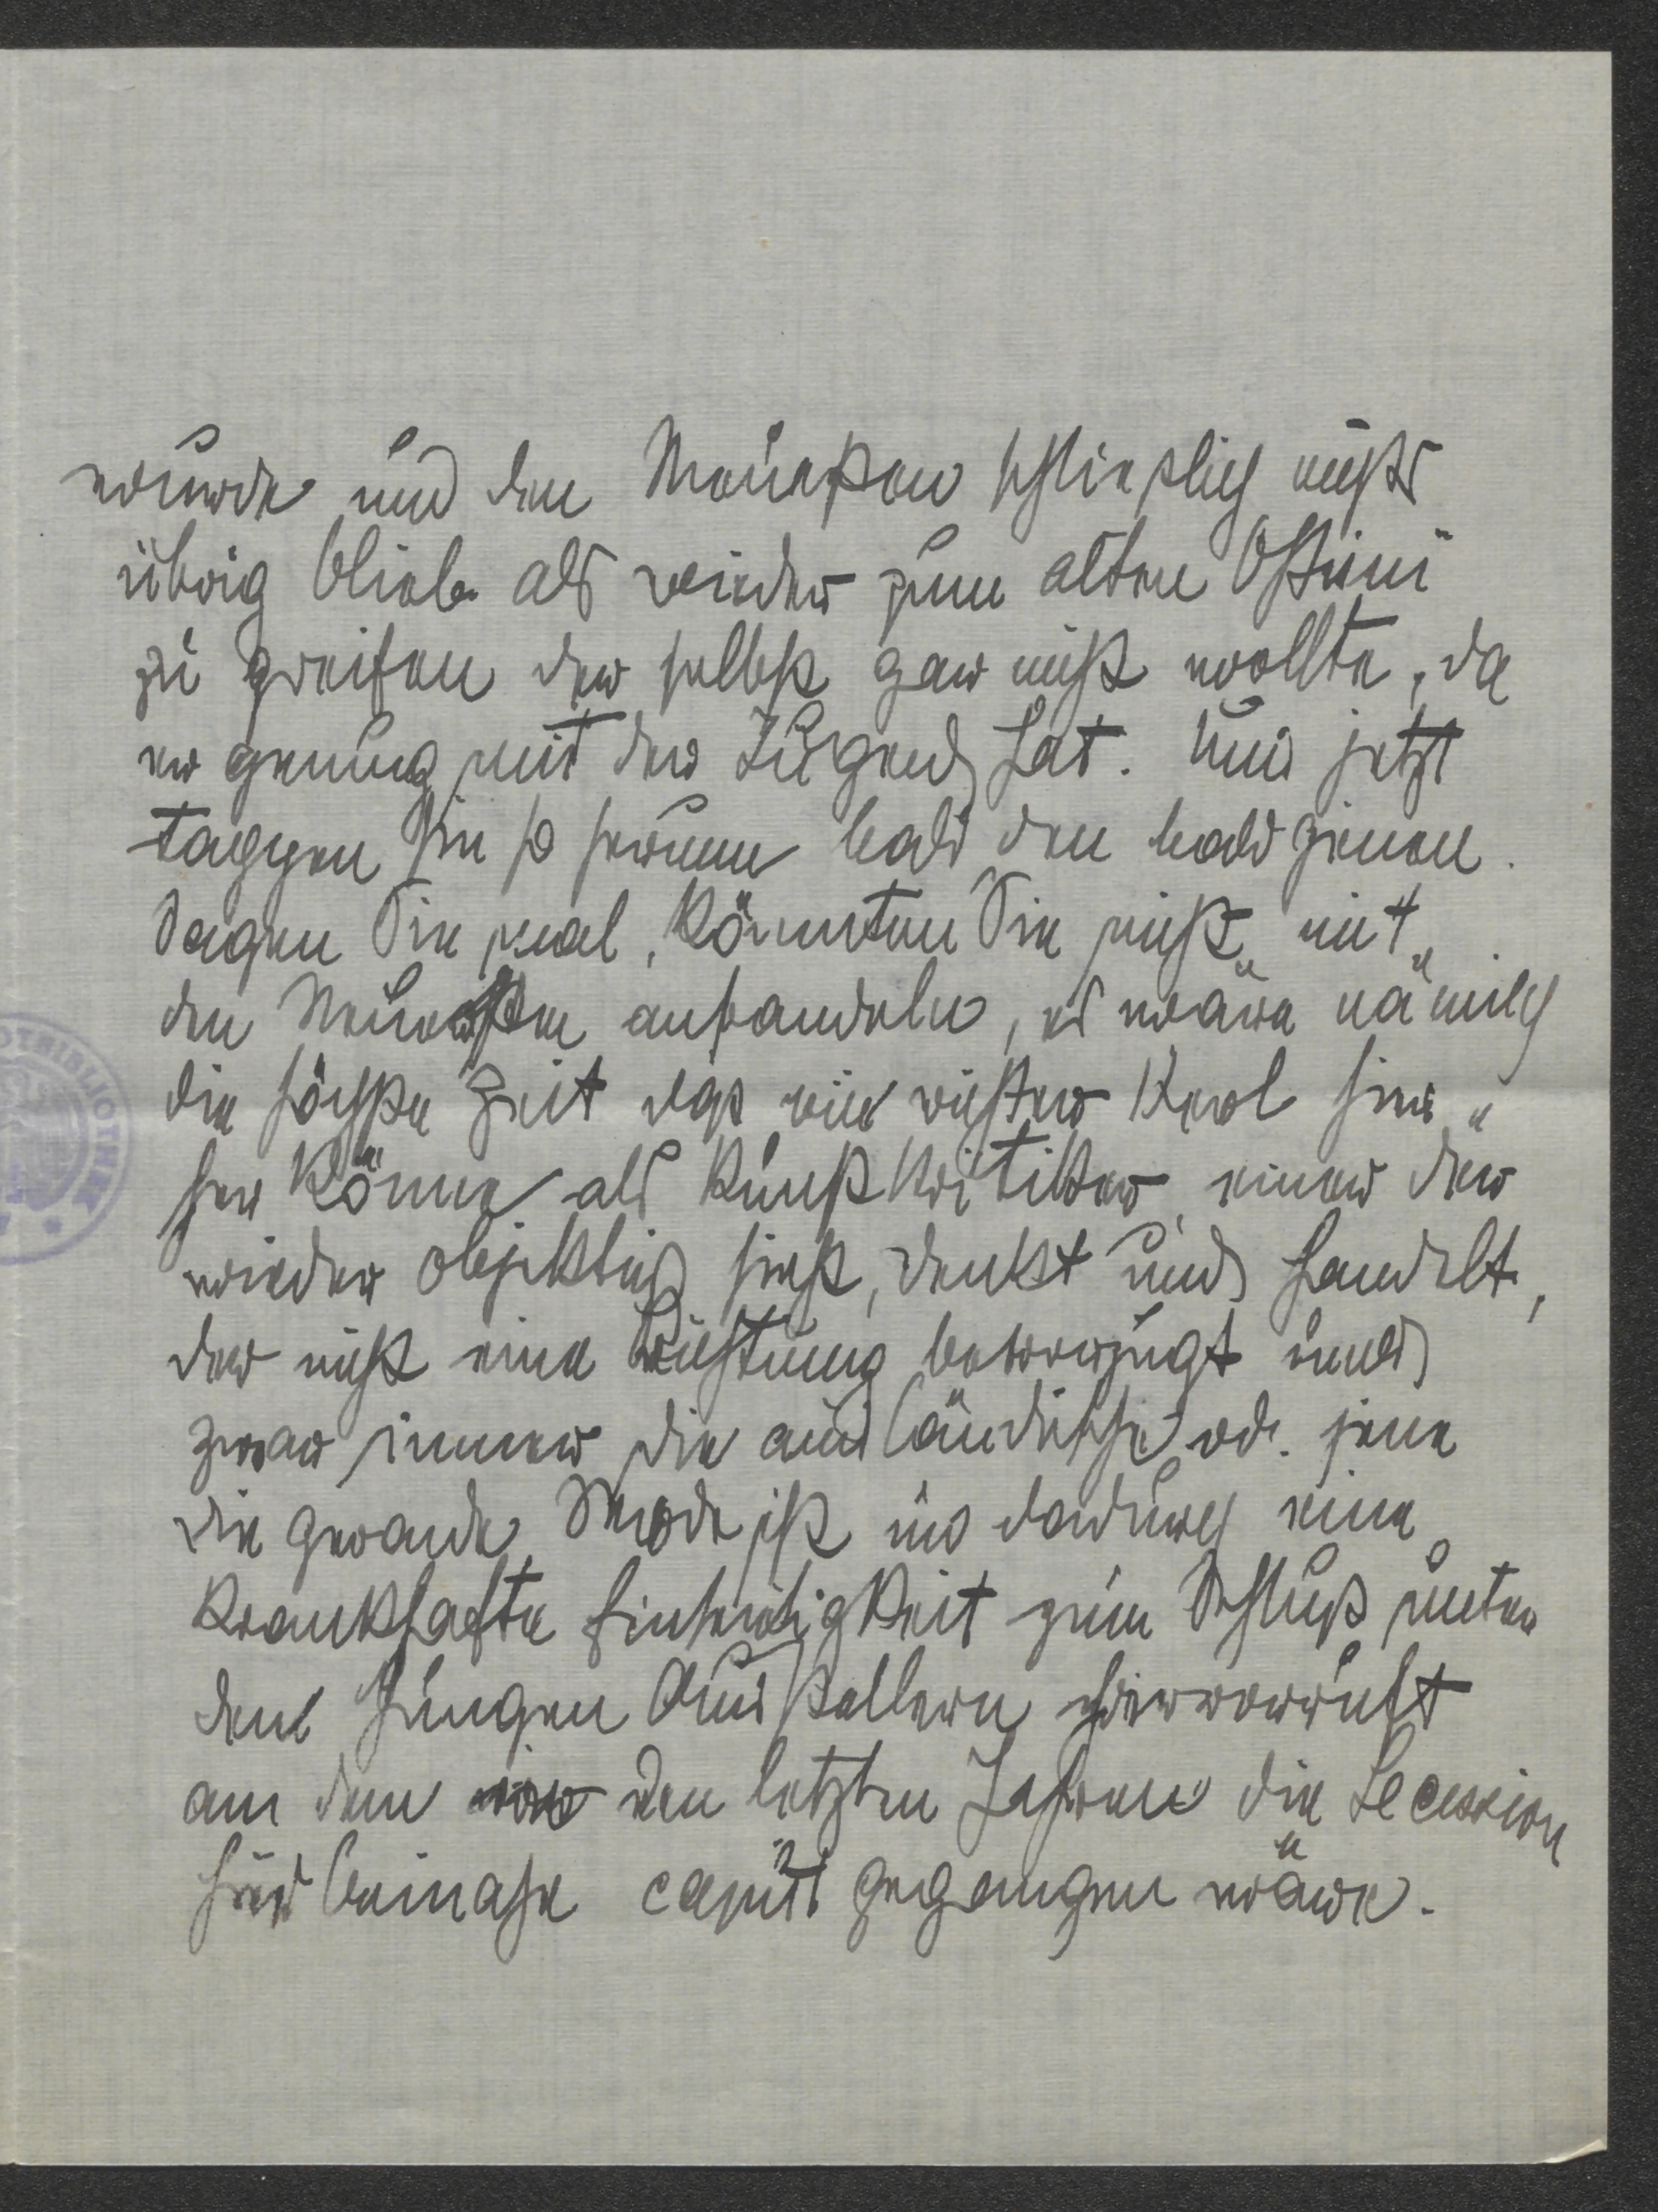 wurde und den Neuesten schließlich nichts
übrig blieb als wieder zum alten Ostini
zu greifen der selbst gar nicht wollte, da
er genug mit der Jugend hat. Und jetzt
tappen sie so herum bald den bald jenen.
Sagen Sie mal, könnten Sie nicht „mit“
den Neuesten anbandeln, es wäre nämlich
die höchste Zeit daß ein richter Kerl hier
her könne als Kunstkritiker, einer der
wieder objektiv sieht, denkt und handelt,
der nicht eine Richtung bevorzugt und
zwar immer die ausländische od. jene
die gerade Mode ist und dadurch eine
krankhafte Einseitigkeit zum Schluß unter
den jungen Ausstellern hervorruft
an dem in den letzten Jahren die Secession
hier beinahe caput gegangen wäre.
OTBIBLIOTHEK